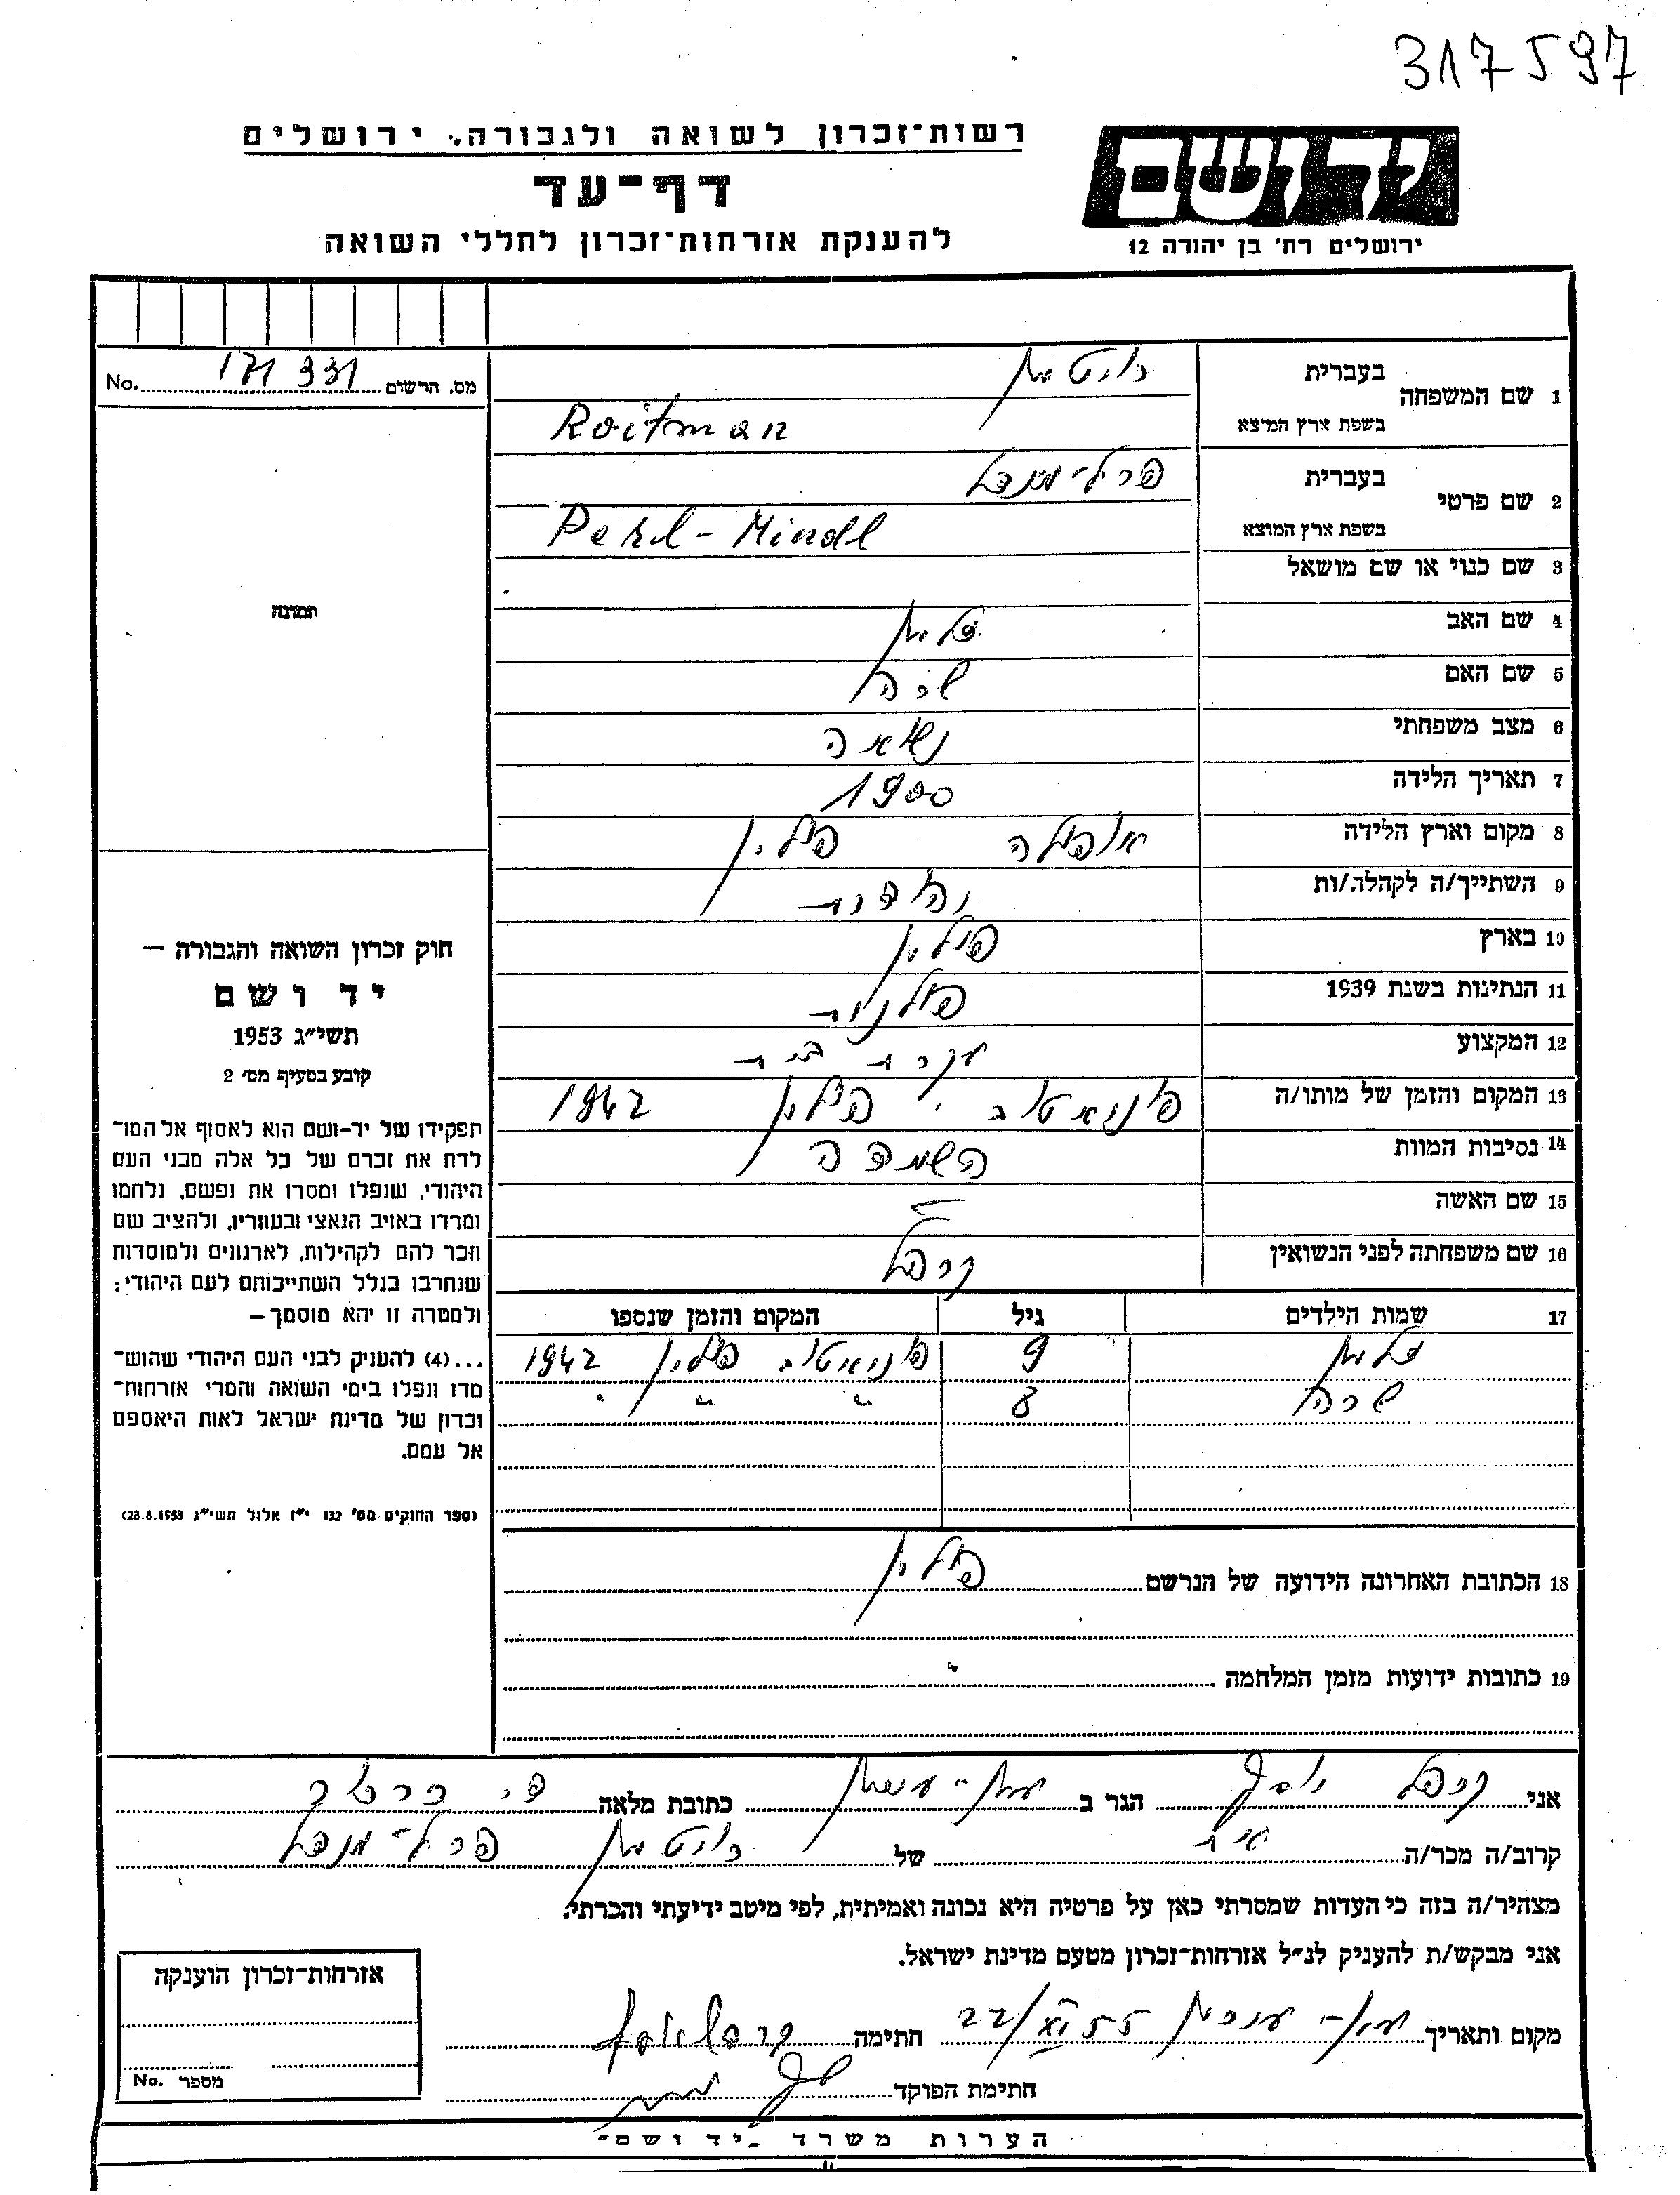 317597
רשות־זכרון לשואה ולגבורה, ירושלים
דף־עד
להענקת אזרחות־זכרון לחללי השואה
יד ושם
ירושלים רח' בן יהודה 12
מס. הרשום 171 331 No.
1 שם המשפחה בעברית רויטמן
בשפת ארץ המוצא Roitman
2 שם פרטי בעברית פרל־מינדל
בשפת ארץ המוצא Perl-Mindl
3 שם כנוי או שם מושאל
4 שם האב
5 שם האם שרה
6 מצב משפחתי נשואה
7 תאריך הלידה 1900
8 מקום וארץ הלידה אופולה פולין
9 השתייך/ה לקהלה/ות יהדות
10 בארץ פולין
11 הנתינות בשנת 1939 פולנית
12 המקצוע עקרת בית
13 המקום והזמן של מותו/ה פוניאטוב פולין 1942
14 נסיבות המוות השמדה
15 שם האשה –
16 שם משפחתה לפני הנשואין
17 שמות הילדים גיל המקום והזמן שנספו
9 פוניאטוב פולין 1942
שרה 8 " " "
18 הכתובת האחרונה הידועה של הנרשם פולין
19 כתובות ידועות מזמן המלחמה
תמונה
חוק זכרון השואה והגבורה –
יד ושם
תשי"ג 1953
קובע בסעיף מס' 2
תפקידו של יד־ושם הוא לאסוף אל המו־
לדת את זכרם של כל אלה מבני העם
היהודי, שנפלו ומסרו את נפשם, נלחמו
ומרדו באויב הנאצי ובעוזריו, ולהציב שם
וזכר להם לקהילות, לארגונים ולמוסדות
שנחרבו בגלל השתייכותם לעם היהודי;
ולמטרה זו יהא מוסמך –
...(4) להעניק לבני העם היהודי שהוש־
מדו ונפלו בימי השואה והמרי אזרחות־
זכרון של מדינת ישראל לאות היאספם
אל עמם.
(ספר החוקים מס' 132 י"ז אלול תשי"ג 28.8.1953)
אני יוסף הגר ב כתובת מלאה
קרוב/ה מכר/ה של רויטמן פרל־מינדל
מצהיר/ה בזה כי העדות שמסרתי כאן על פרטיה היא נכונה ואמיתית, לפי מיטב ידיעתי והכרתי.
אני מבקש/ת להעניק לנ"ל אזרחות־זכרון מטעם מדינת ישראל.
מקום ותאריך חתימה
חתימת הפוקד
אזרחות־זכרון הוענקה
מספר No.
הערות משרד "יד ושם"